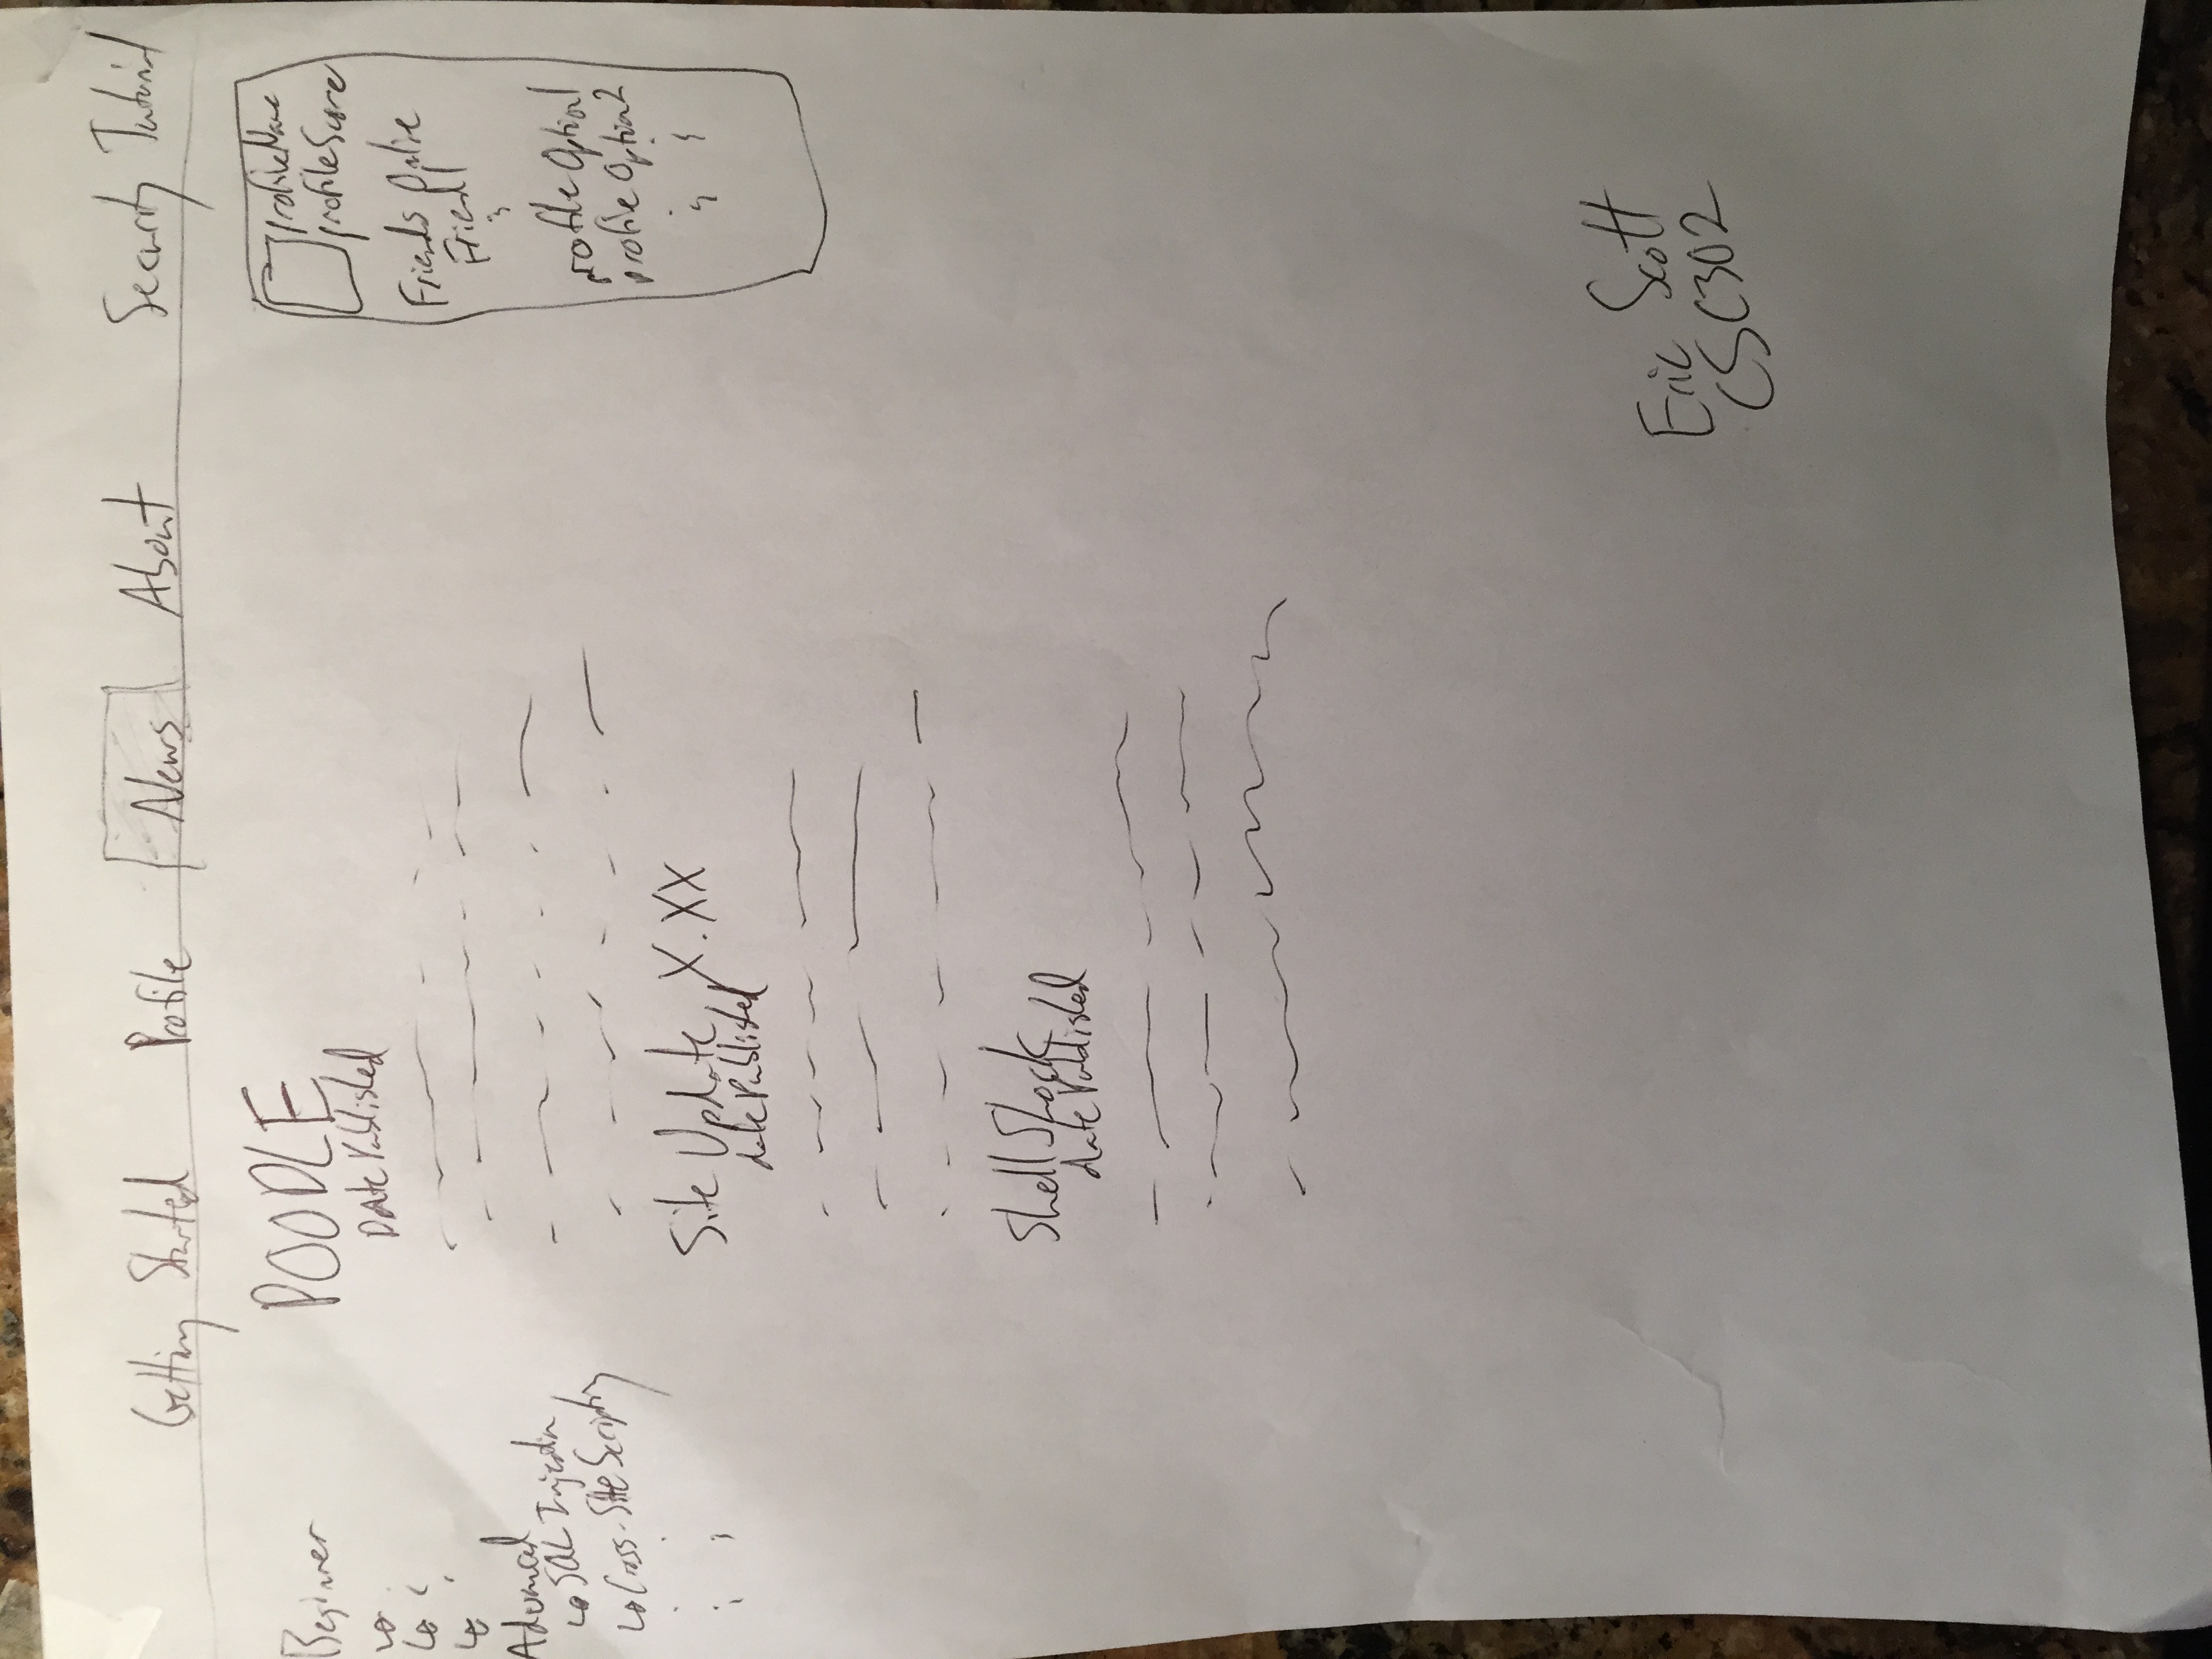 Getting Started Profile News About Security Tutorial
Beginner
Advanced
SQL Injection
Cross-Site Scripting
POODLE
Date Published
Site Update X.XX
datePublished
ShellShock
datePublished
profileName
profileScore
Friends Online
Friend1
profileOption1
profileOption2
Eric Scott
CSC302